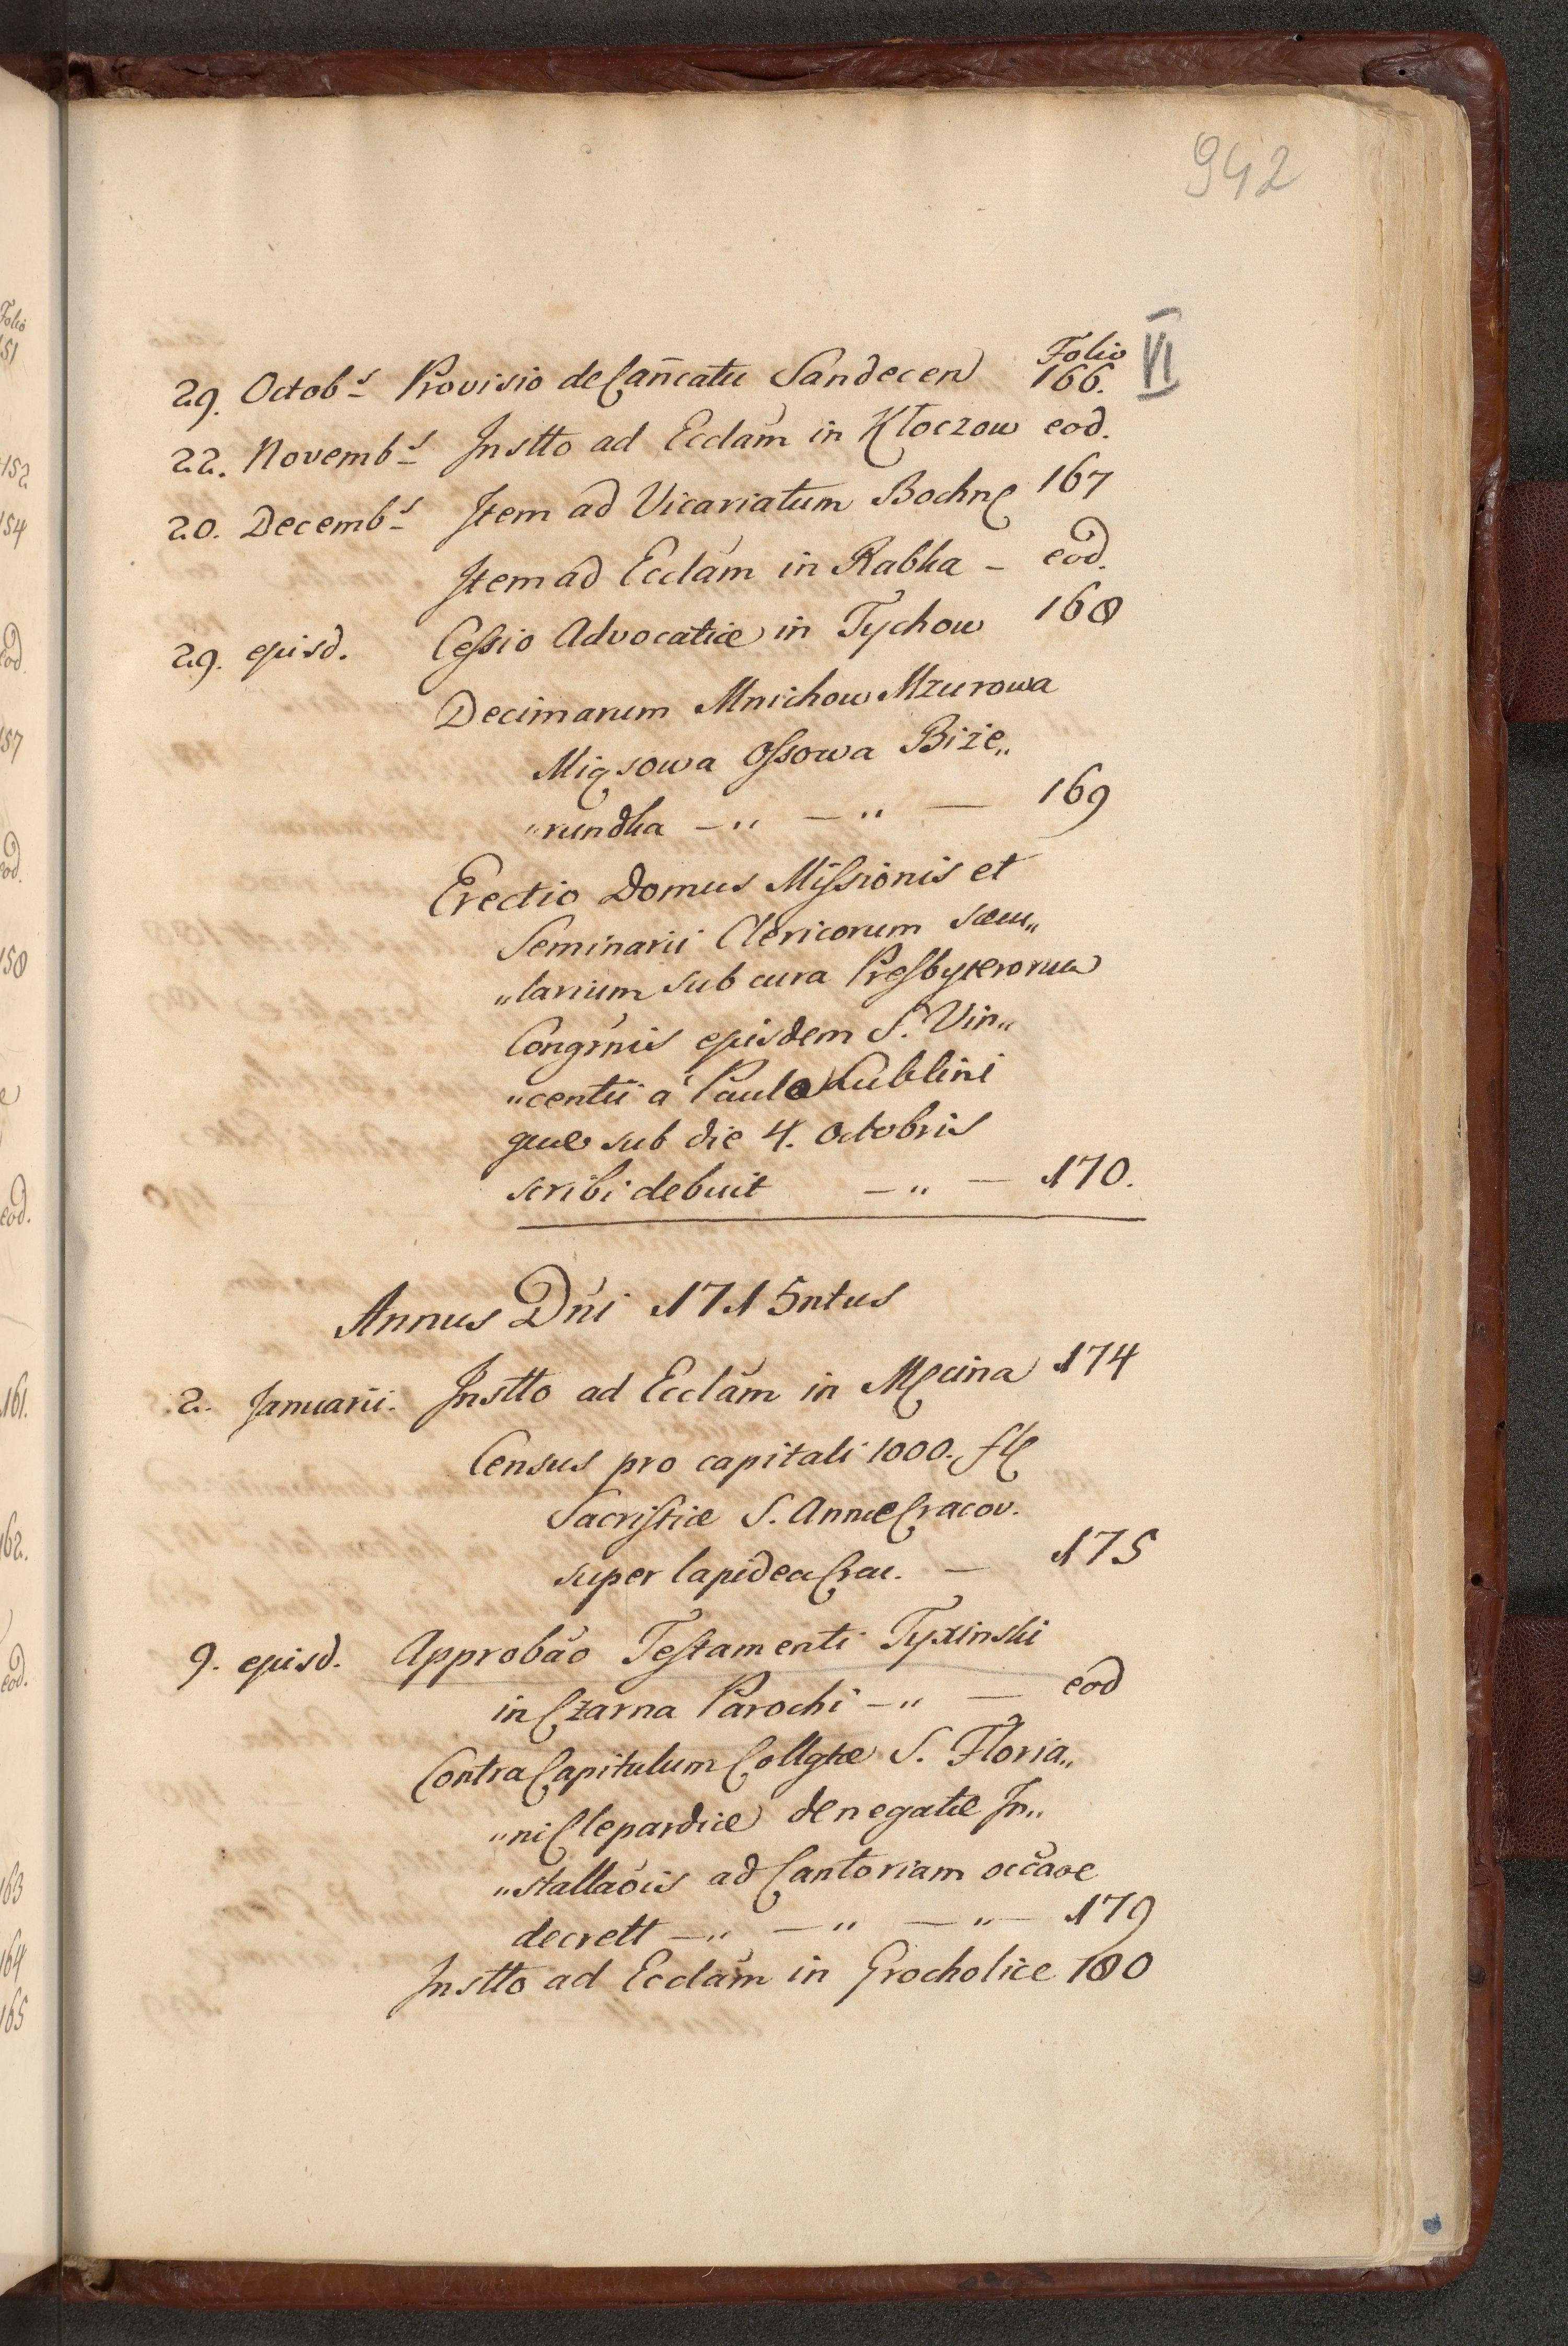 942
Folio VI
29. Octobs Provisio de Cañcatu Sandecen 166.
22. Novembs Instto ad Ecclam in Kłoczow eod.
20. Decembs Item ad Vicariatum Bochnę 167
Item ad Ecclam in Rabka – eod.
29. ejusd. Cessio Advocatiæ in Tychow 168
Decimarum Mnichow Mzurowa
Miąsowa Ossowa Biże„
„rundka –„ –„ — 169
Erectio Domus Missionis et
Seminarii Clericorum sæcu„
„larium sub cura Presbyterorum
Congrnis ejusdem S. Vin„
„centii á Paulo Lublini
quæ sub die 4. Octobris
scribi debuit –„ — 170.
Annus Dni 1715ntus
2. Januarii. Instto ad Ecclam in Męcina 174
Census pro capitali 1000. fl
Sacristiæ S. Annæ Cracov.
super lapidea Crac. — 175
9. ejusd. Approbao Testamenti Tyxinski
in Czarna Parochi –„ — eod
Contra Capitulum Collgtæ S. Floria„
„ni Clepardiæ denegatæ In„
„stallaois ad Cantoriam occaoe
decrett —„ —„ —„— 179
Instto ad Ecclam in Grocholice 180
Folio
151
152
154
eod.
157
eod.
158
eod.
161.
162.
eod.
163
164
165